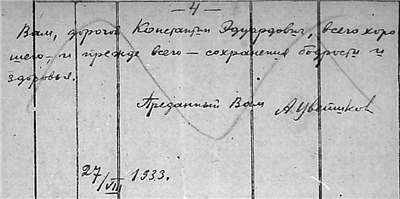 — 4 —
Вам, дорогой Константин Эдуардович, всего хоро
шего, и прежде всего — сохранения бодрости и
здоровья.
Преданный Вам А. Цветиков
27/VIII 1933.